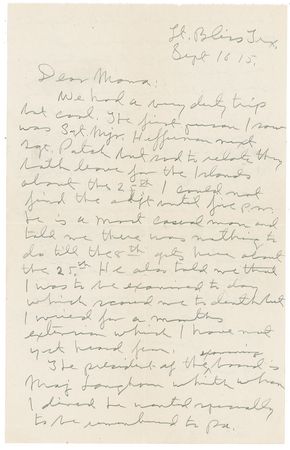 Ft. Bliss Tex.
Sept 16 15.
Dear Mama:
We had a very dusty trip
but cool. The first person I saw
was Sgt. Mjr. Heffernan next
Sgt. Patch but sad to relate they
both leave for the Islands
about the 25th I could not
find the adjt until five p.m.
he is a most casual man and
told me there was nothing to
do till the 8th gets here about
the 25th He also told me that
I was to be examined to day
which scared me to death but
I wired for a months
extension which I have not
yet heard from.
The president of the examining board is
Maj Langhorn with whom
I dined he wanted specially
to be remembered to pa.